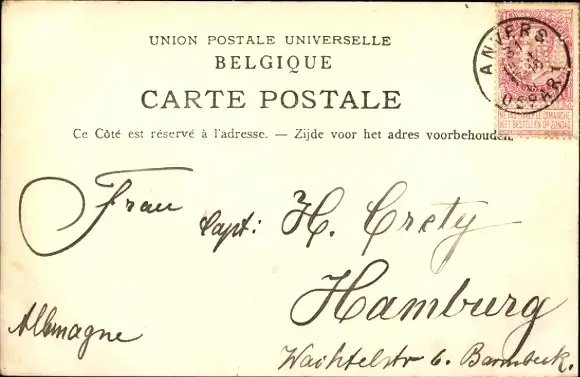 UNION POSTALE UNIVERSELLE
BELGIQUE
CARTE POSTALE
Ce Côté est réservé à l'adresse. — Zijde voor het adres voorbehouden.
ANVERS
NE PAS LIVRER LE DIMANCHE
NIET BESTELLEN OP ZONDAG
Frau Capt: H. Crety
Hamburg
Allemagne
Wachtelstr 6. Barmbeck.